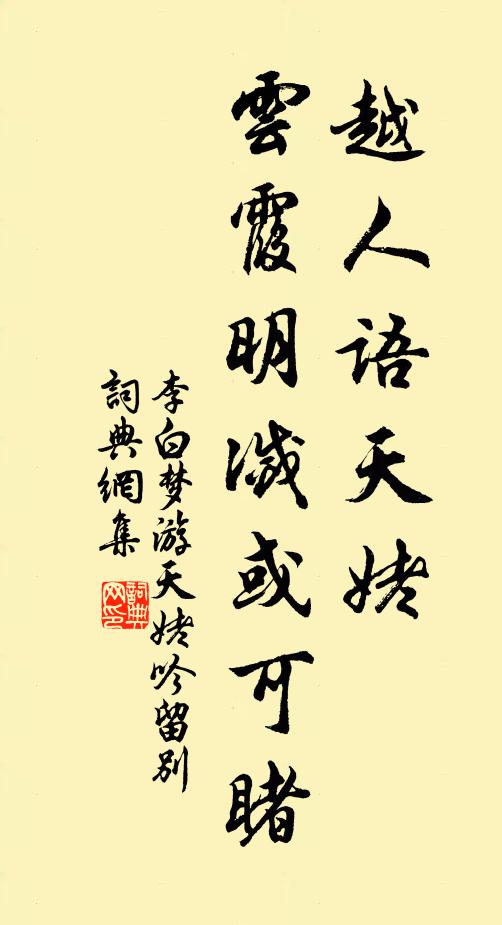 越人語天姥
雲霞明滅或可睹
李白梦游天姥吟留别
詞典網集
詞典网印